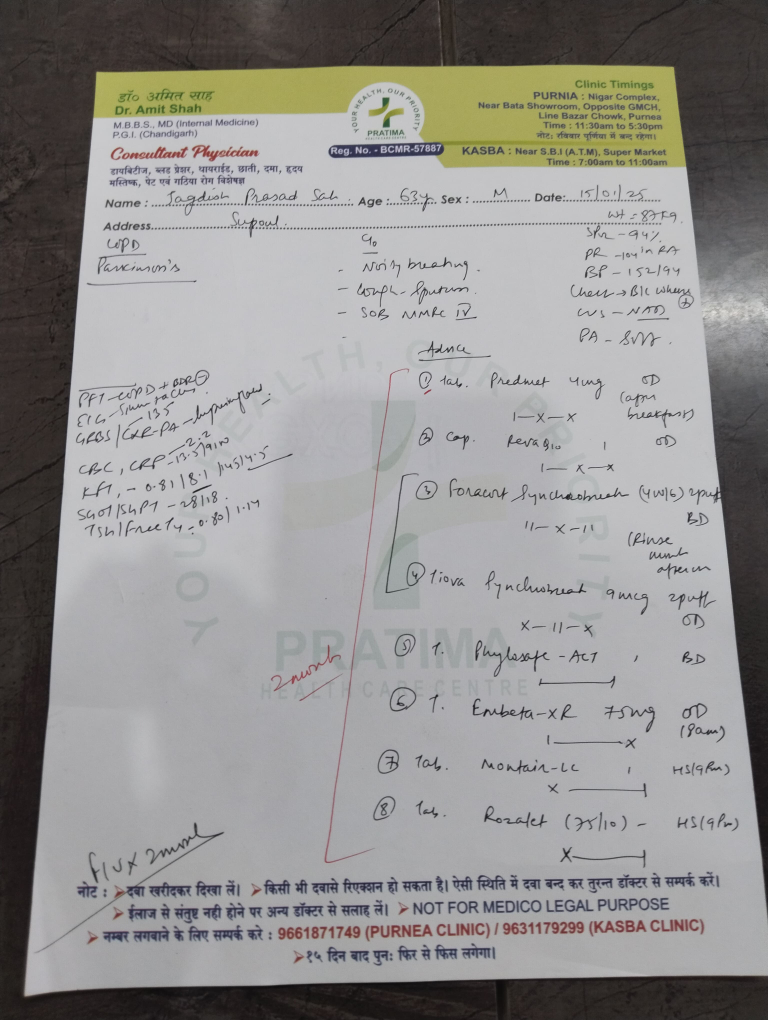 डॉ० अमित साह
Dr. Amit Shah
M.B.B.S., MD (Internal Medicine)
P.G.I. (Chandigarh)
Consultant Physician
डायबिटीज, ब्लड प्रेशर, थायराईड, छाती, दमा, हृदय
मस्तिष्क, पेट एवं गठिया रोग विशेषज्ञ
YOUR HEALTH, OUR PRIORITY
PRATIMA
HEALTH CARE CENTRE
Reg. No. - BCMR-57887
Clinic Timings
PURNIA : Nigar Complex,
Near Bata Showroom, Opposite GMCH,
Line Bazar Chowk, Purnea
Time : 11:30am to 5:30pm
नोट: रविवार पूर्णिया में बन्द रहेगा।
KASBA : Near S.B.I (A.T.M), Super Market
Time : 7:00am to 11:00am
Name : Jagdish Prasad Sah Age : 63y Sex : M Date: 15/01/25
Address Supoul.
Wt = 87 Kg.
COPD
Parkinson's
C/o
- Noisy breathing.
- Cough - Sputum.
- SOB MMRC IV
-
SPO2 - 94%
PR - 104 in RA
BP - 152/94
Chest → B/L wheeze +
CVS - NAD
PA - Soft.
PFT - COPD + BDR -
ECG - Sinus
GRBS/CXR-PA - 135
CBC, CRP - 13.5/9100 2.2
KFT, - 0.81/8.1/145/4.5
SGOT/SGPT - 28/18.
TSH/Free T4 - 0.80/1.14
Advice
1 Tab. Predmet 4mg OD
(after breakfast)
1 — x — x
2 Cap. Reva 1 OD
1 — x — x
3 Foracort Synchrobreath (400/6) 2puff BD
11 — x — 11
(Rinse mouth after use
4 Tiova Synchrobreath 9mcg 2puff OD
x — 11 — x
5 T. Phylosafe-ACT 1 BD
6 T. Embeta-XR 75mg OD
(8am)
1 — x
7 Tab. Montair-LC 1 HS(9Pm)
x
8 Tab. Rozalet (75/10) - HS(9Pm)
X
2 month
F/U x 2 month
YOUR HEALTH, OUR PRIORITY
PRATIMA
HEALTH CARE CENTRE
नोट : ➤दवा खरीदकर दिखा लें। ➤किसी भी दवासे रिएक्शन हो सकता है। ऐसी स्थिति में दवा बन्द कर तुरन्त डॉक्टर से सम्पर्क करें।
➤ईलाज से संतुष्ट नही होने पर अन्य डॉक्टर से सलाह लें। ➤NOT FOR MEDICO LEGAL PURPOSE
➤नम्बर लगवाने के लिए सम्पर्क करे : 9661871749 (PURNEA CLINIC) / 9631179299 (KASBA CLINIC)
➤१५ दिन बाद पुनः फिर से फिस लगेगा।